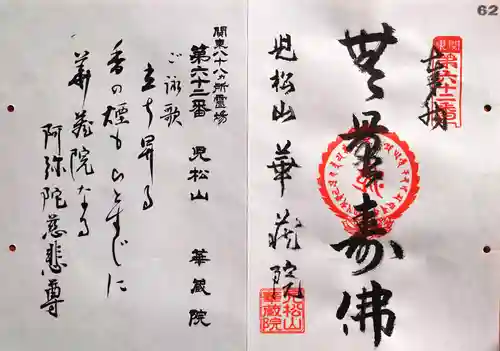 62
奉拝
関東
第六十二番
無量寿佛
児松山 華蔵院
児松山
華蔵院
関東八十八ヵ所霊場
第六十二番 児松山 華蔵院
ご詠歌
立ち昇る
香の煙も ひとすじに
華蔵院なる
阿弥陀慈悲尊